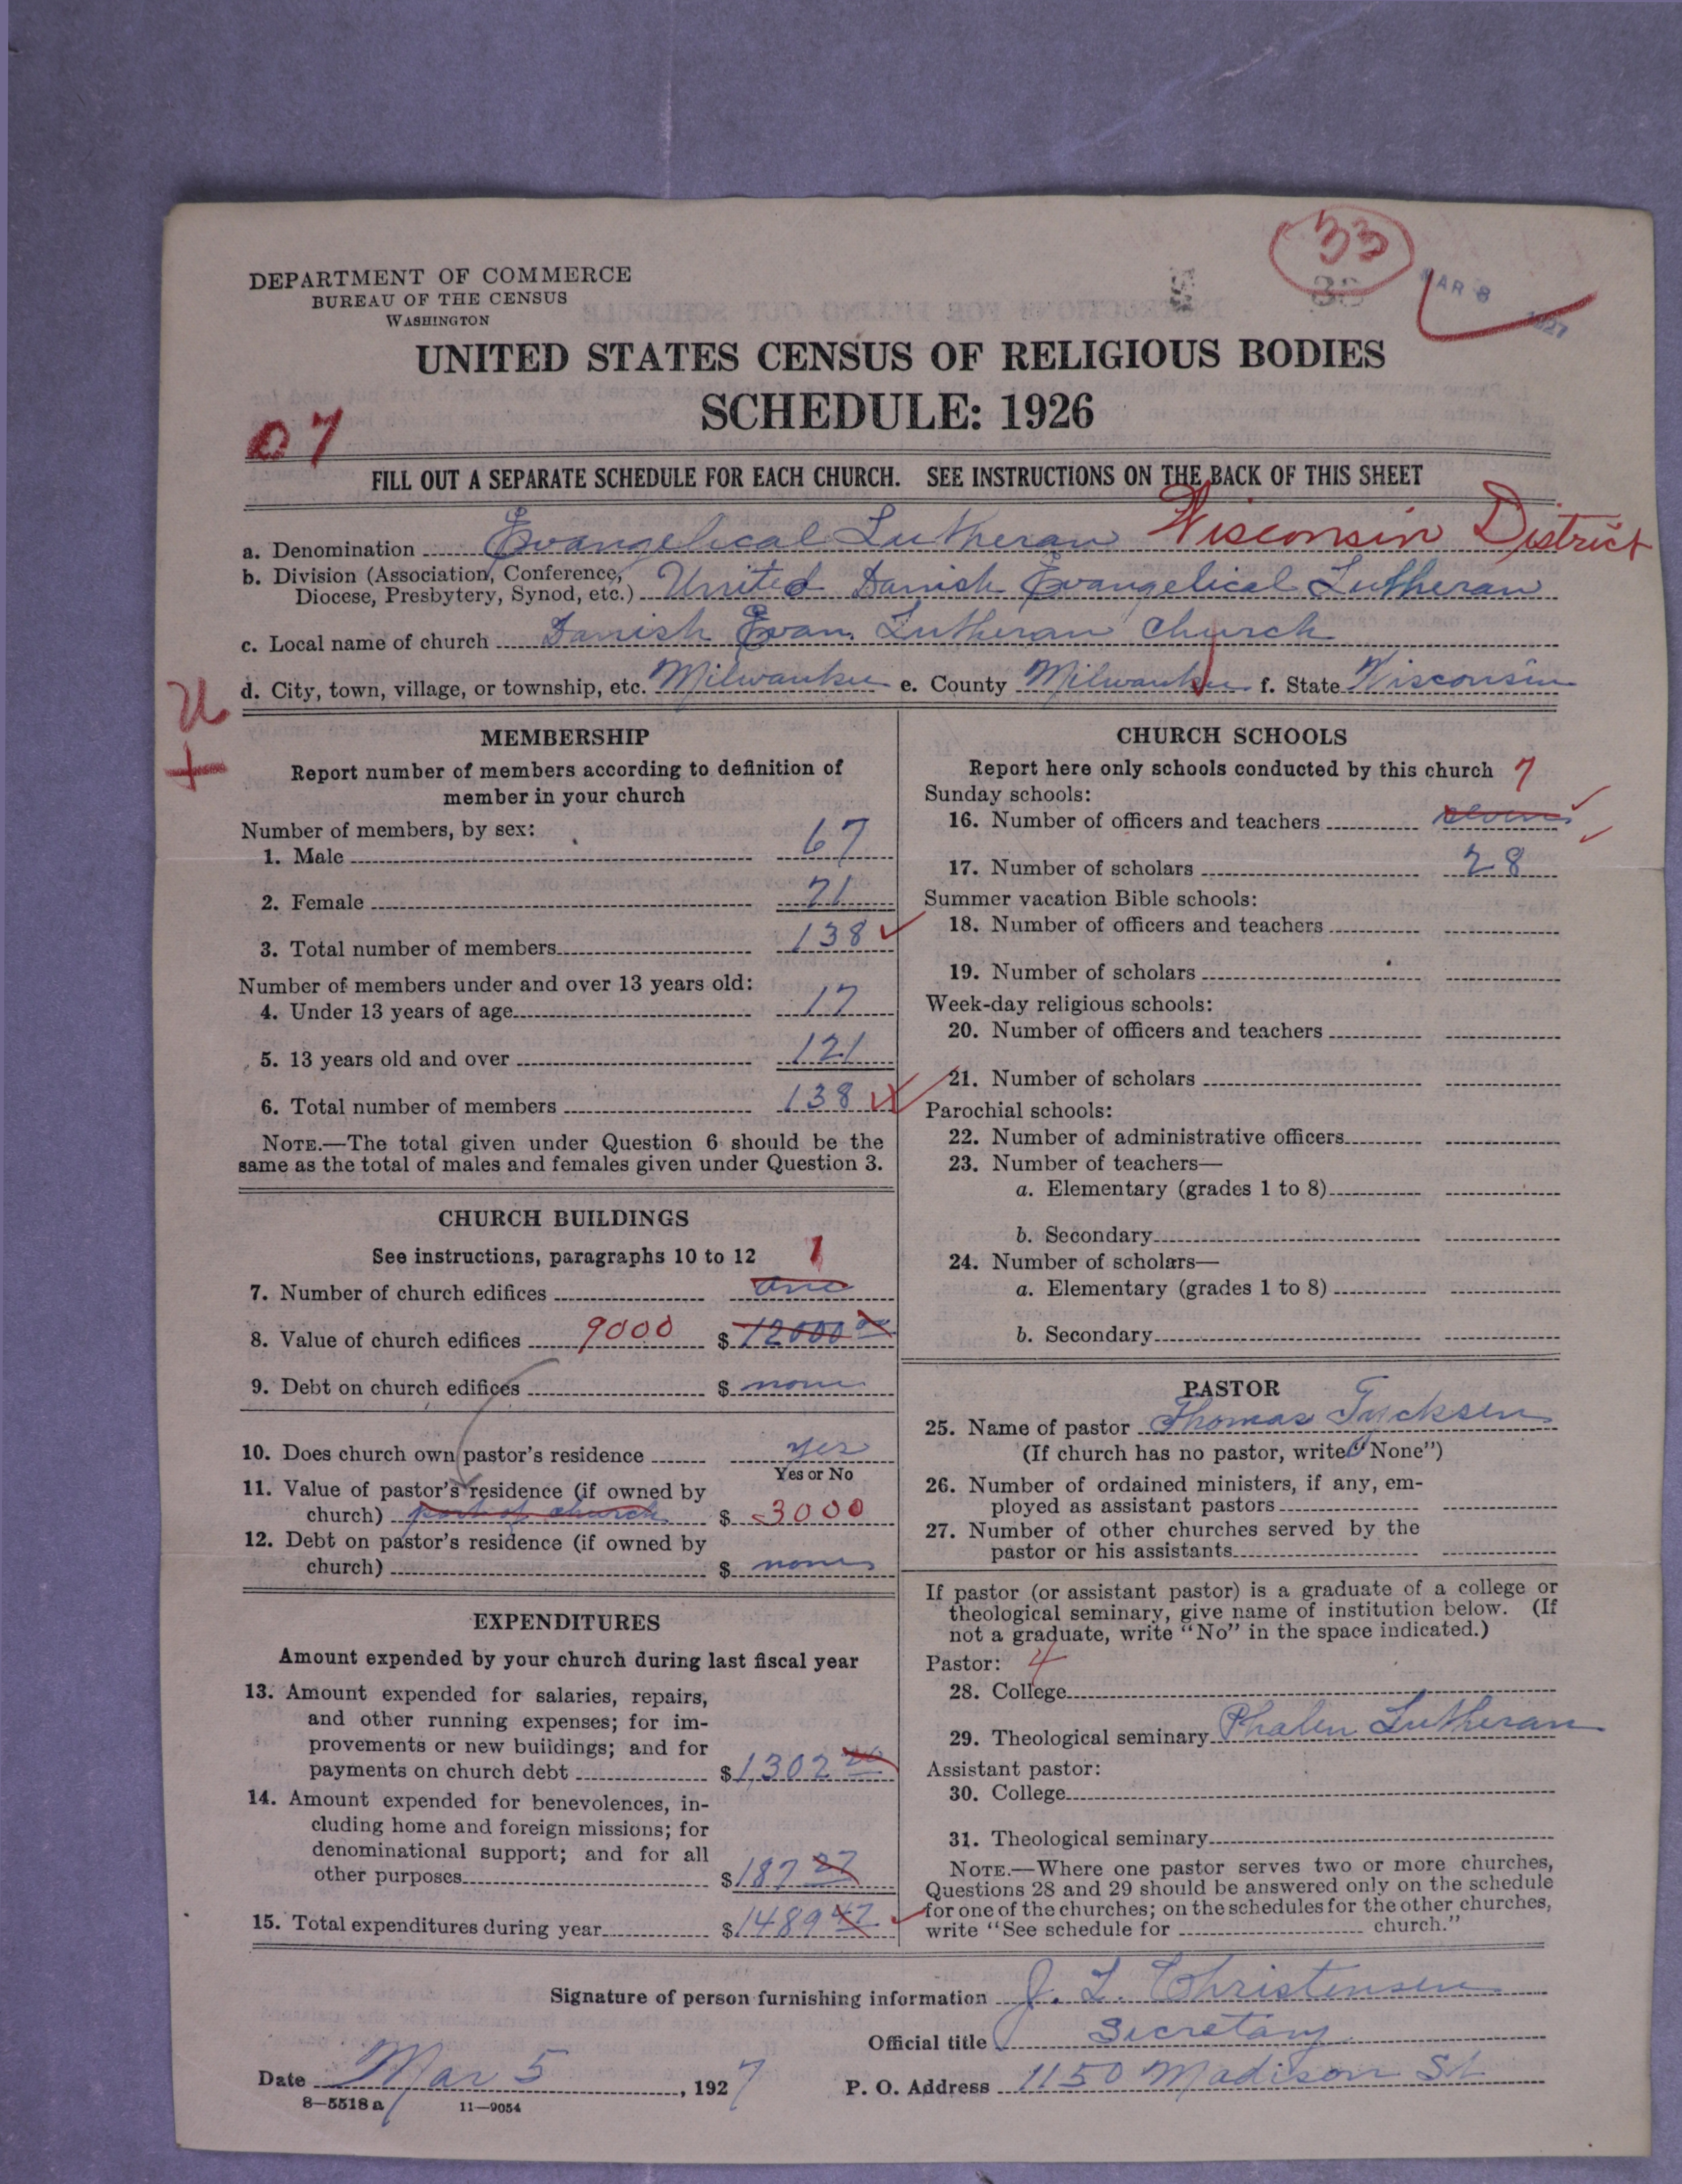 33
MAR 8 1927
DEPARTMENT OF COMMERCE
BUREAU OF THE CENSUS
WASHINGTON
UNITED STATES CENSUS OF RELIGIOUS BODIES
SCHEDULE: 1926
07
FILL OUT A SEPARATE SCHEDULE FOR EACH CHURCH. SEE INSTRUCTIONS ON THE BACK OF THIS SHEET
a. Denomination Evangelical Lutheran Wisconsin District
b. Division (Association, Conference, Diocese, Presbytery, Synod, etc.) United Danish Evangelical Lutheran
c. Local name of church Danish Evan. Lutheran Church
d. City, town, village, or township, etc. Milwaukee e. County Milwaukee f. State Wisconsin
MEMBERSHIP
Report number of members according to definition of
member in your church
Number of members, by sex:
1. Male 67
2. Female 71
3. Total number of members 138
Number of members under and over 13 years old:
4. Under 13 years of age 17
5. 13 years old and over 121
6. Total number of members 138
NOTE.—The total given under Question 6 should be the
same as the total of males and females given under Question 3.
CHURCH BUILDINGS
See instructions, paragraphs 10 to 12 1
7. Number of church edifices one
8. Value of church edifices 9000 $ 12000 00
9. Debt on church edifices $ none
10. Does church own pastor's residence yes
Yes or No
11. Value of pastor's residence (if owned by
church) part of church $ 3000
12. Debt on pastor's residence (if owned by
church) $ none
EXPENDITURES
Amount expended by your church during last fiscal year
13. Amount expended for salaries, repairs,
and other running expenses; for im-
provements or new buildings; and for
payments on church debt $ 1302 20
14. Amount expended for benevolences, in-
cluding home and foreign missions; for
denominational support; and for all
other purposes $ 187 27
15. Total expenditures during year $ 1489 47
CHURCH SCHOOLS
Report here only schools conducted by this church 7
Sunday schools:
16. Number of officers and teachers seven
17. Number of scholars 28
Summer vacation Bible schools:
18. Number of officers and teachers
19. Number of scholars
Week-day religious schools:
20. Number of officers and teachers
21. Number of scholars
Parochial schools:
22. Number of administrative officers
23. Number of teachers—
a. Elementary (grades 1 to 8)
b. Secondary
24. Number of scholars—
a. Elementary (grades 1 to 8)
b. Secondary
PASTOR
25. Name of pastor Thomas Tycksen
(If church has no pastor, write "None")
26. Number of ordained ministers, if any, em-
ployed as assistant pastors
27. Number of other churches served by the
pastor or his assistants
If pastor (or assistant pastor) is a graduate of a college or
theological seminary, give name of institution below. (If
not a graduate, write "No" in the space indicated.)
Pastor: 4
28. College
29. Theological seminary Phalen Lutheran
Assistant pastor:
30. College
31. Theological seminary
NOTE.—Where one pastor serves two or more churches,
Questions 28 and 29 should be answered only on the schedule
for one of the churches; on the schedules for the other churches,
write "See schedule for church."
Signature of person furnishing information J. L. Christensen
Official title Secretary
Date Mar 5, 1927 P. O. Address 1150 Madison St
8—5518 a 11—9054